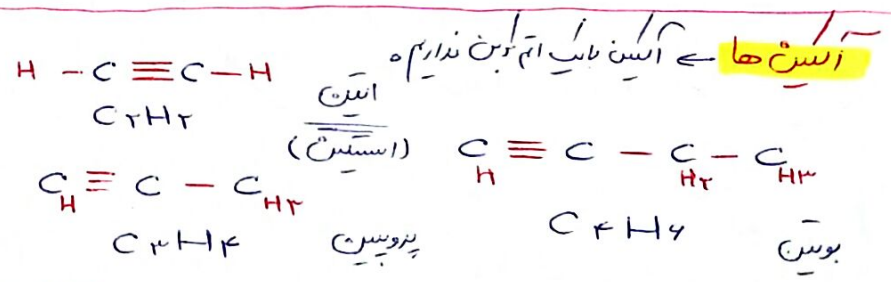 آلکین ها ← آلکین با یک اتم کربن نداریم.
H – C ≡ C – H
C۲H۲
اتین
(استیلین)
CH ≡ C – CH۳
C۳H۴
پروپین
CH ≡ C – CH۲ – CH۳
C۴H۶
بوتین